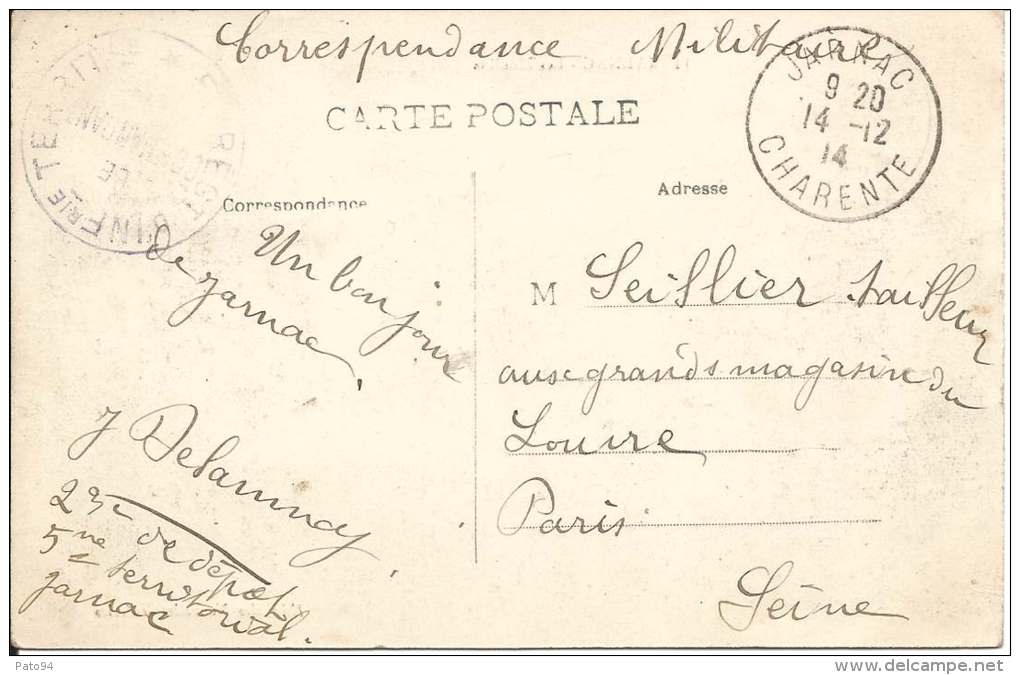 Correspondance Militaire
CARTE POSTALE
JARNAC
9 20
14 -12
14
CHARENTE
Correspondance
Adresse
Un bonjour
de Jarnac
J Delaunay
de dépôt
5me territorial.
Jarnac
M Seillier tailleur
aux grands magasin du
Louvre
Paris
Seine
Pato94
www.delcampe.net